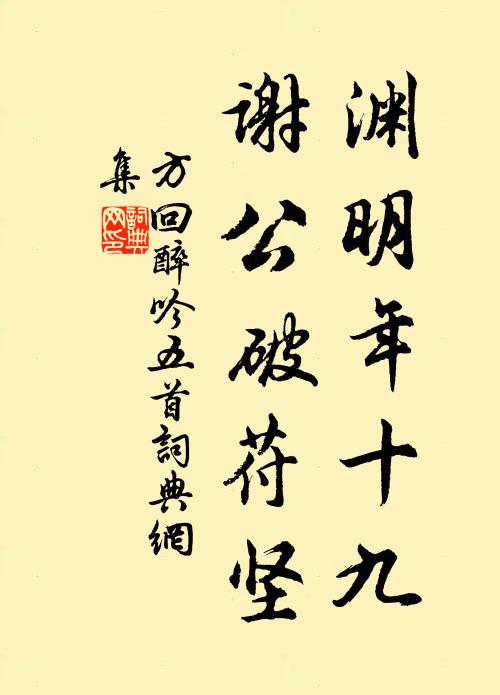 渊明年十九
谢公破苻坚
方回醉吟五首詞典網
集
詞典网印